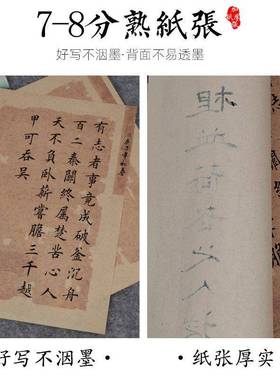 7-8分熟紙張
好写不洇墨·背面不易透墨
有志者事竟成破釜沉舟
百二秦關終属楚苦心人
天不負卧薪嘗膽三千越
甲可吞吴
好写不洇墨
纸张厚实